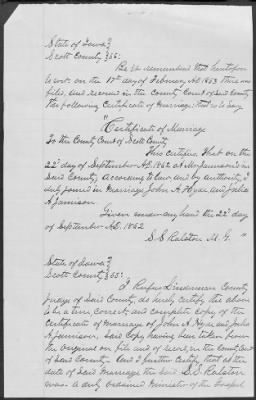 State of Iowa }
Scott County } SS:
Be it remembered that heretofore
to wit on the 17th day of February A.D. 1853 there was
filed, and record in the County Court of said County
the following certificate of marriage; that is to say
"Certificate of Marriage
To the County Court of Scott County
This certifies that on the
22d day of September A.D. 1852 at my mansion in
said County, according to law and by authority, I
duly joined in marriage John A Hyae and Julia
A Jamison.
Given under my hand the 22d day
of September A.D. 1852
S.S Ralston M. G. "
State of Iowa }
Scott County } SS:
I Rufus Linderman County
judge of said County, do hereby certify the above
to be a true, correct, and complete copy of the
certificate of marriage of John A. Hyae and Julia
A Jamison, said copy having been taken from
the original on file and of record, in the County Court
of said County. And I further certify that at the
date of said marriage the said S.S. Ralston
was a duly ordained minister of the Gospel